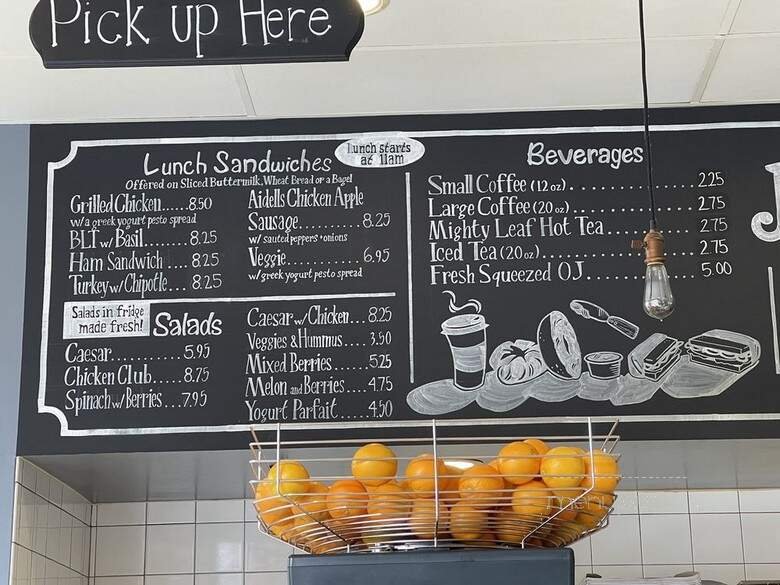 Pick up Here
Lunch Sandwiches
Lunch starts
at 11am
Offered on Sliced Buttermilk, Wheat Bread or a Bagel
Grilled Chicken.....8.50
w/a greek yogurt pesto spread
BLT w/ Basil.......8.25
Ham Sandwich....8.25
Turkey w/ Chipotle...8.25
Aidells Chicken Apple
Sausage..........8.25
w/ sauted peppers + onions
Veggie............6.95
w/ greek yogurt pesto spread
Salads in fridge
made fresh!
Salads
Caesar............5.95
Chicken Club......8.75
Spinach w/ Berries...7.95
Caesar w/ Chicken...8.25
Veggies & Hummus....3.50
Mixed Berries......5.25
Melon and Berries....4.75
Yogurt Parfait.....4.50
Beverages
Small Coffee (12 oz)..................2.25
Large Coffee (20 oz)..................2.75
Mighty Leaf Hot Tea...............2.75
Iced Tea (20 oz)......................2.75
Fresh Squeezed OJ................5.00
J